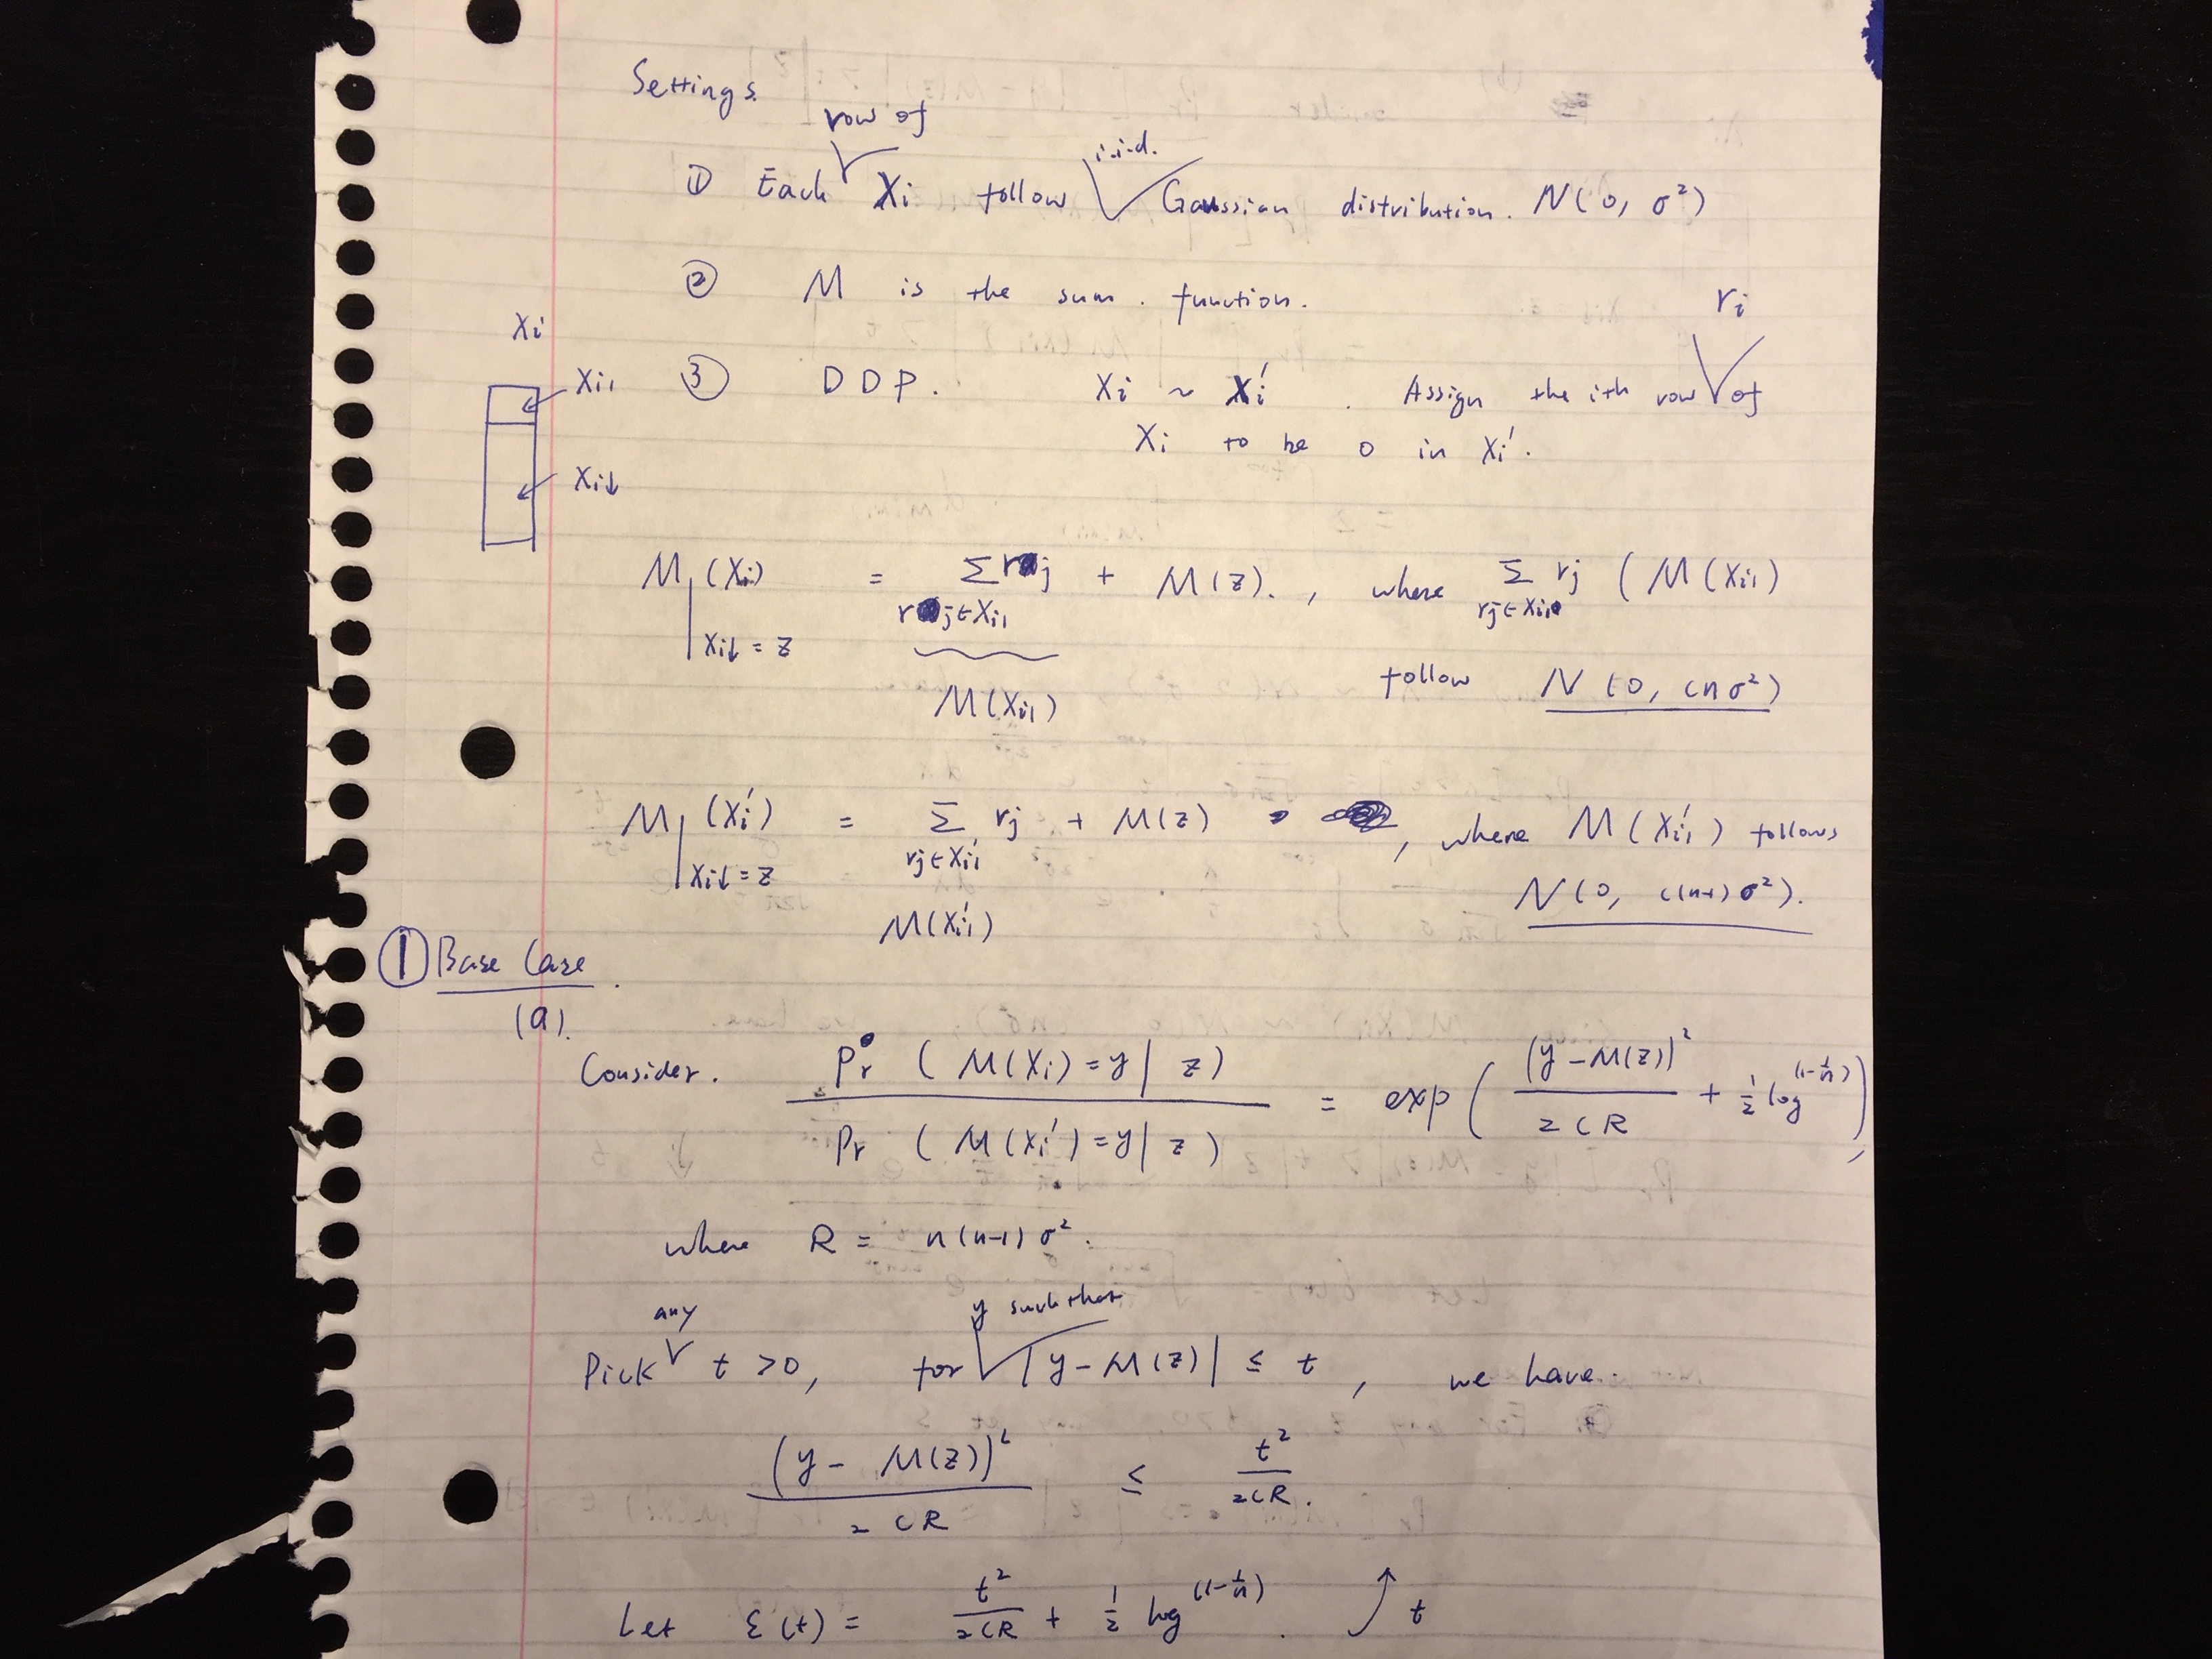 Settings.
row of
i.i.d.
① Each Xi follow Gaussian distribution. N(0, σ²)
② M is the sum. function.
ri
③ DDP. Xi ~ Xi′. Assign the ith row of
Xi to be 0 in Xi′.
Xi
Xi1
Xi↓
M|Xi↓=z (Xi) = Σ rj∈Xi1 rj + M(z)., where Σ rj∈Xi1 rj (M(Xi1)
M(Xi1)
follow N(0, cnσ²)
M|Xi↓=z (Xi′) = Σ rj∈Xi1′ rj + M(z), where M(Xi1′) follows
M(Xi1′)
N(0, c(n-1)σ²).
① Base Case.
(a).
Consider. Pr(M(Xi)=y|z) / Pr(M(Xi′)=y|z) = exp( (y-M(z))² / 2CR + ½ log(1-1/n) ),
where R = n(n-1)σ².
any
y such that
Pick t>0, for |y-M(z)| ≤ t, we have.
(y-M(z))² / 2CR ≤ t² / 2CR.
Let ε(t) = t² / 2CR + ½ log(1-1/n). ↑ t